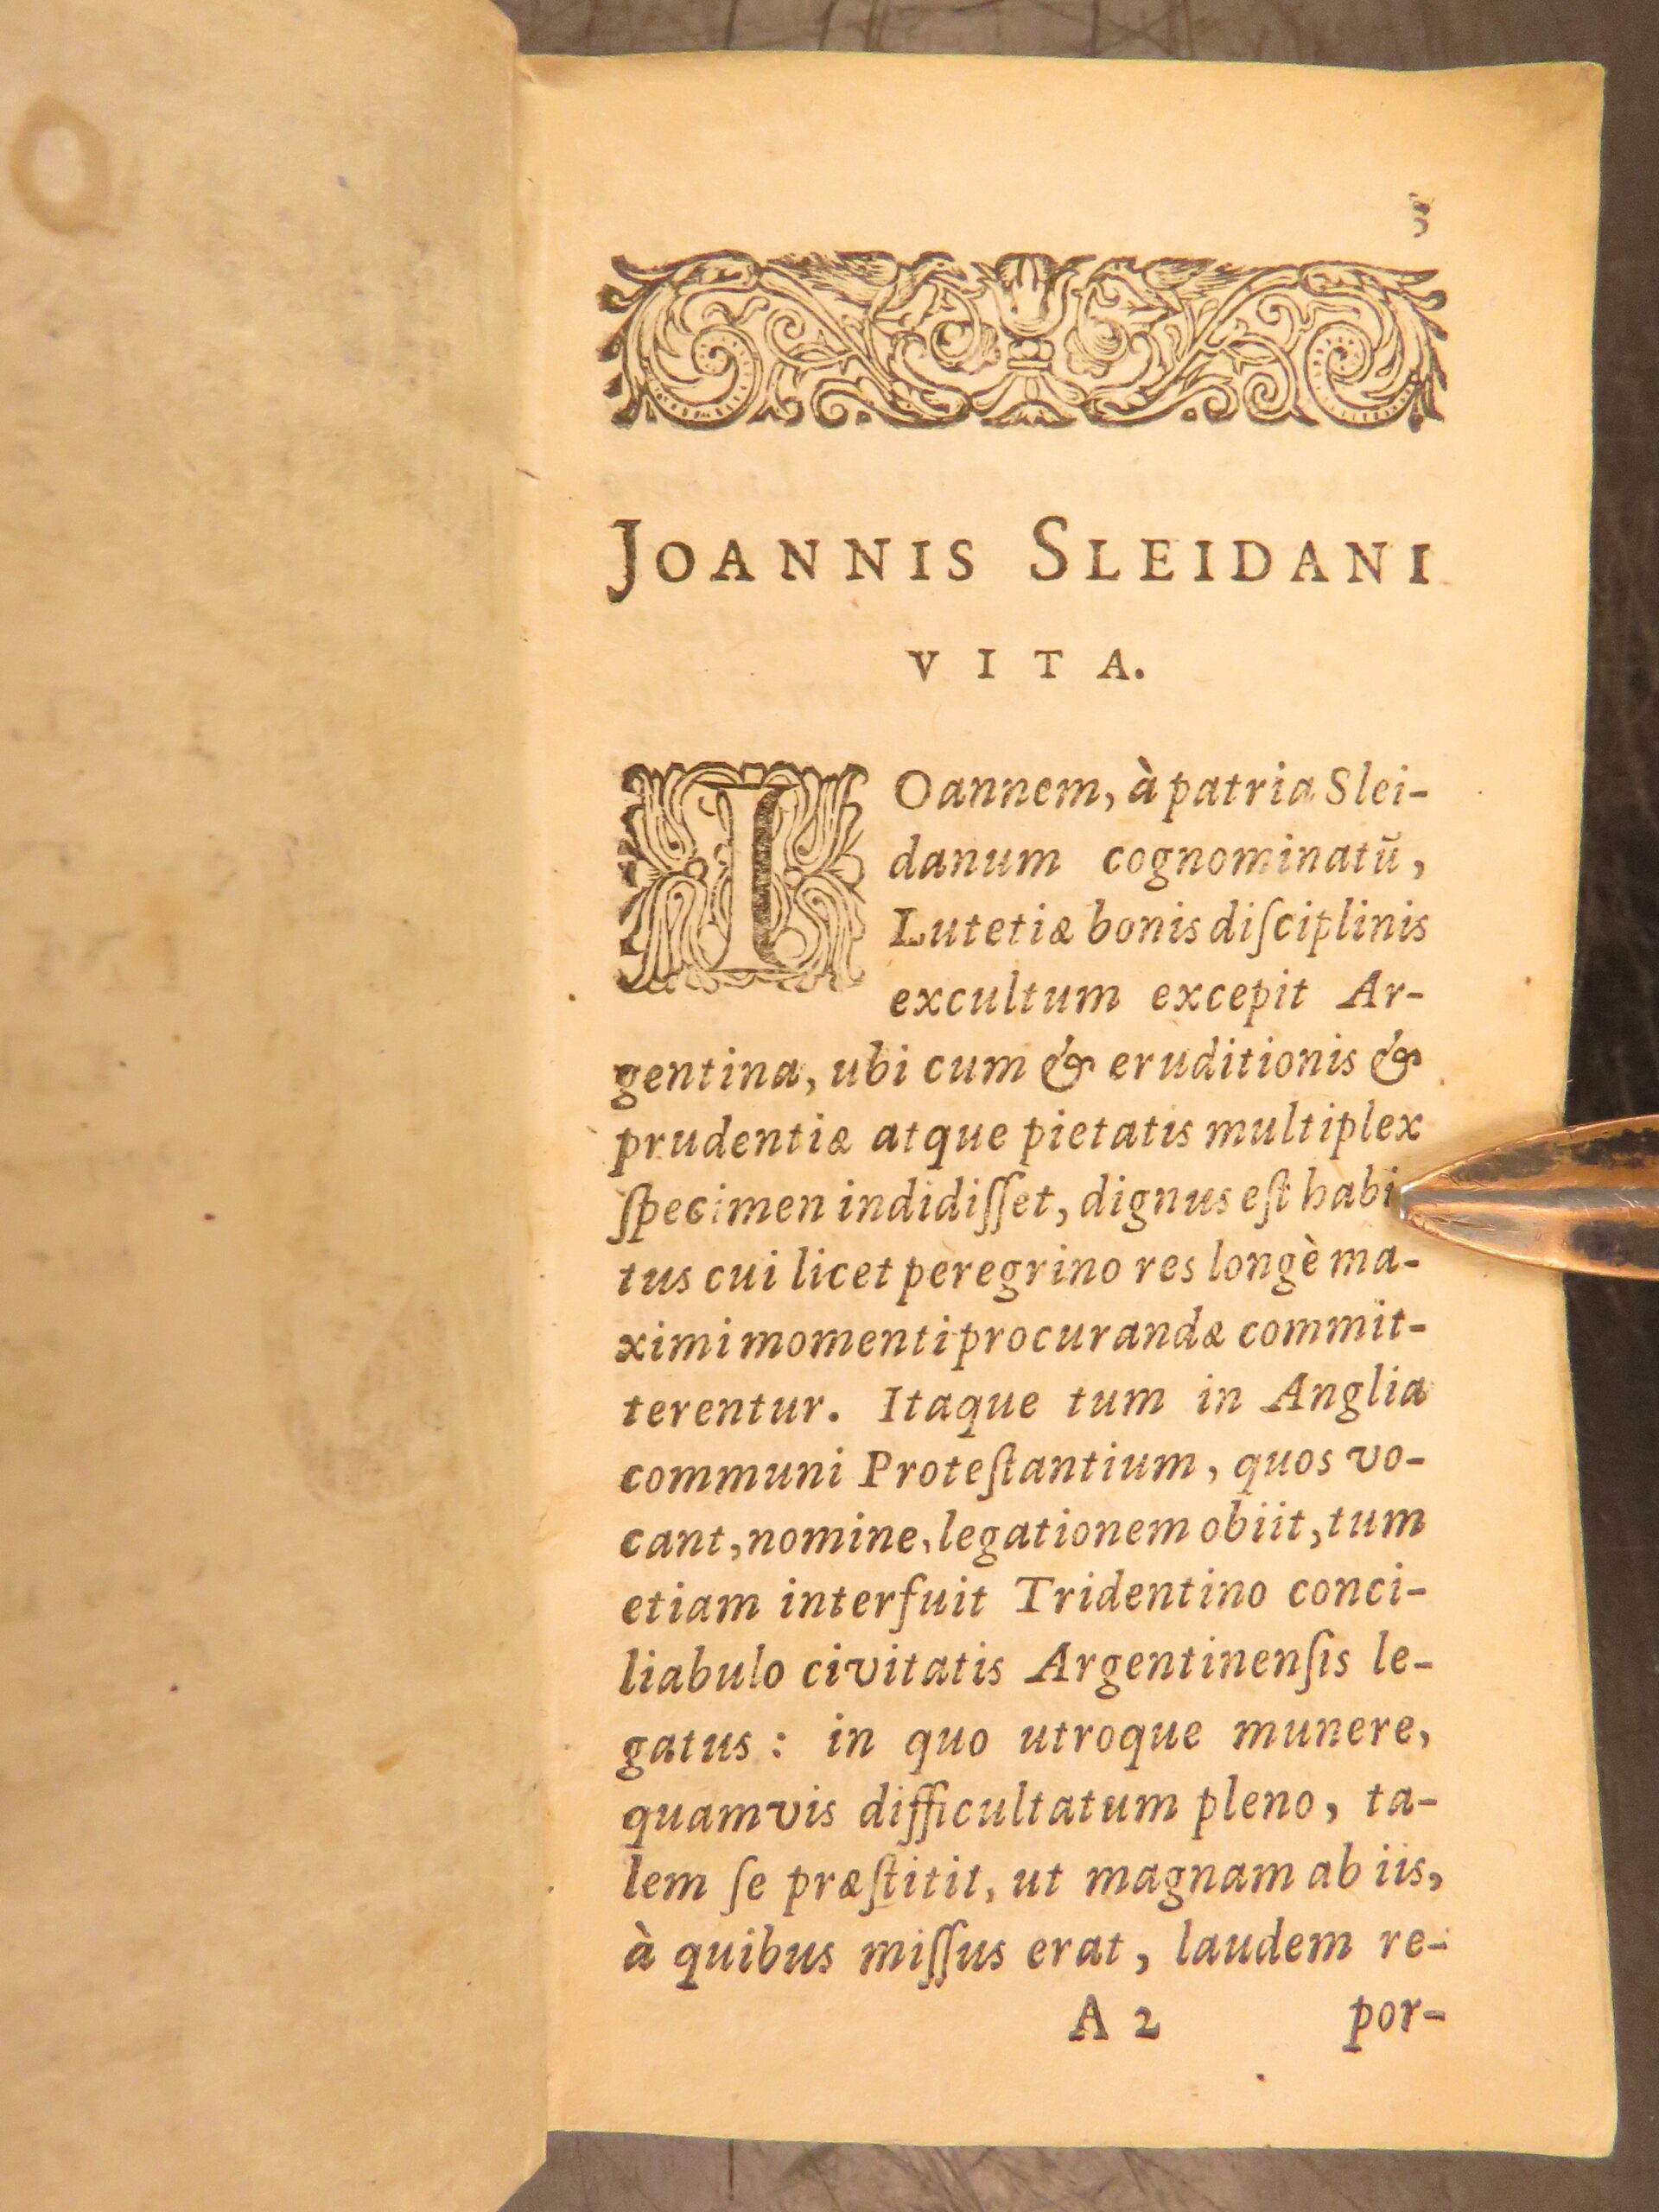 3
JOANNIS SLEIDANI
VITA.
IOannem, à patria Slei-
danum cognominatū,
Lutetiæ bonis diſciplinis
excultum excepit Ar-
gentina, ubi cum & eruditionis &
prudentiæ atque pietatis multiplex
ſpecimen indidiſſet, dignus eſt habi
tus cui licet peregrino res longè ma-
ximi momenti procurandæ commit-
terentur. Itaque tum in Anglia
communi Proteſtantium, quos vo-
cant, nomine, legationem obiit, tum
etiam interfuit Tridentino conci-
liabulo civitatis Argentinenſis le-
gatus: in quo utroque munere,
quamvis difficultatum pleno, ta-
lem ſe præſtitit, ut magnam ab iis,
à quibus miſſus erat, laudem re-
A 2 por-